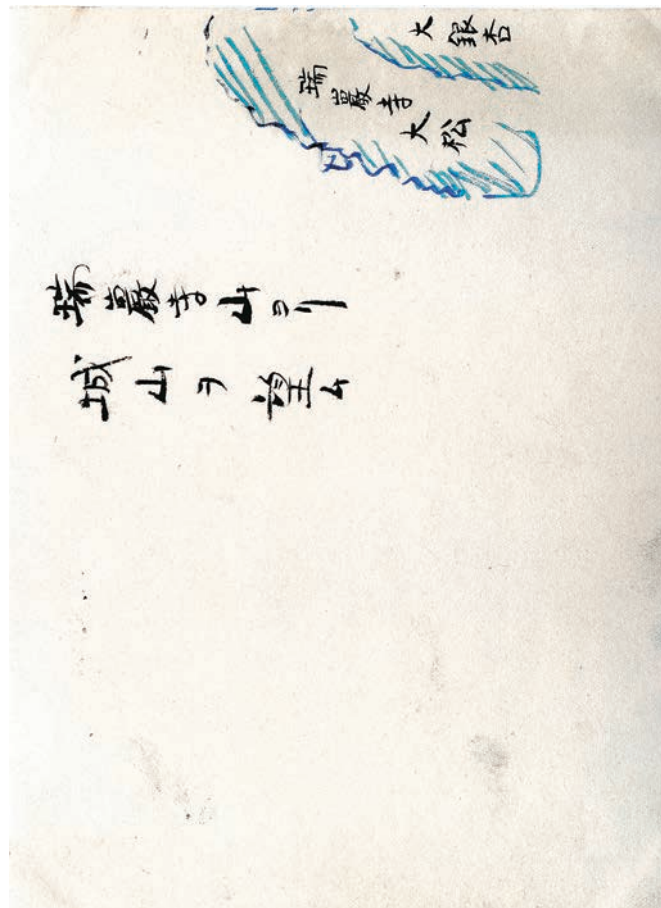 大銀杏
瑞巌寺大松
瑞巌寺山ヨリ
城山ヲ望ム